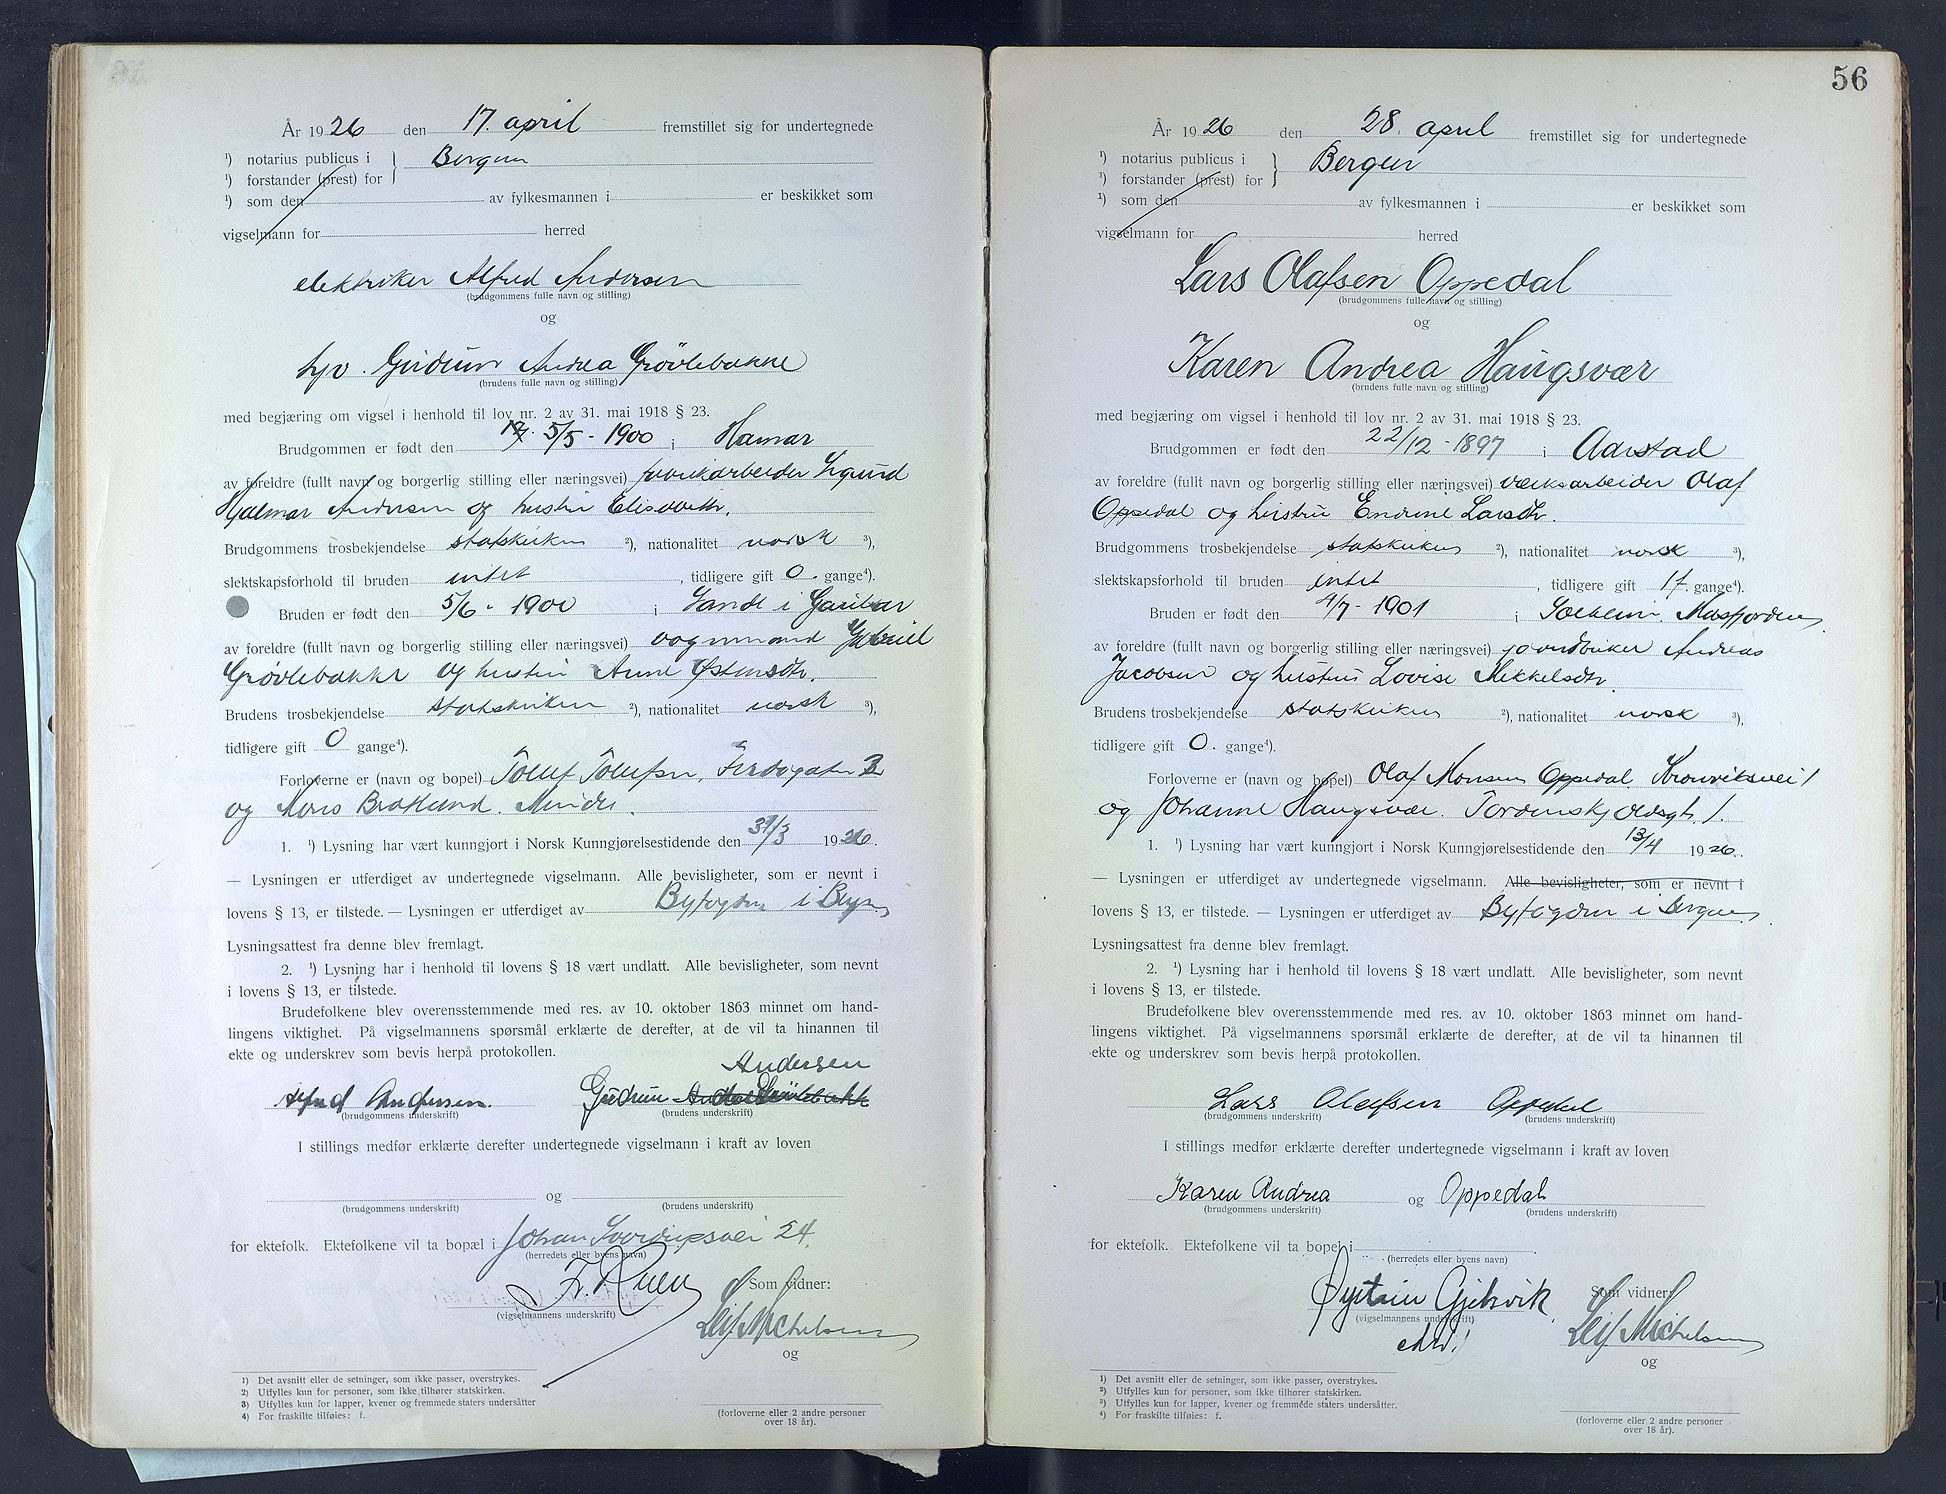 År 1926 den 17. april fremstillet sig for undertegnede
¹) notarius publicus i } Bergen
¹) forstander (prest) for
¹) som den av fylkesmannen i er beskikket som
vigselmann for herred
elektriker Alfred Andersen
(brudgommens fulle navn og stilling)
og
Gudrun Andrea Grøvlebakke
(brudens fulle navn og stilling)
med begjæring om vigsel i henhold til lov nr. 2 av 31. mai 1918 § 23.
Brudgommen er født den 5/5 - 1900 i Hamar
av foreldre (fullt navn og borgerlig stilling eller næringsvei) Sigurd
Hjalmar Andersen og hustru Elisabeth.
Brudgommens trosbekjendelse statskirken ²), nationalitet norsk ³),
slektskapsforhold til bruden intet, tidligere gift 0. gange⁴).
Bruden er født den 5/6 - 1900 i Sandt i Gaular
av foreldre (fullt navn og borgerlig stilling eller næringsvei) vognmand Gabriel
Grøvlebakke og hustru Anne Østensdtr.
Brudens trosbekjendelse statskirken ²), nationalitet norsk ³),
tidligere gift 0 gange⁴).
Forloverne er (navn og bopel) Tollef Tollefsen,
og Mons Minde.
1. ¹) Lysning har vært kunngjort i Norsk Kunngjørelsestidende den 31/3 1926.
— Lysningen er utferdiget av undertegnede vigselmann. Alle bevisligheter, som er nevnt i
lovens § 13, er tilstede. — Lysningen er utferdiget av Byfogden i Bergen
Lysningsattest fra denne blev fremlagt.
2. ¹) Lysning har i henhold til lovens § 18 vært undlatt. Alle bevisligheter, som nevnt
i lovens § 13, er tilstede.
Brudefolkene blev overensstemmende med res. av 10. oktober 1863 minnet om hand-
lingens viktighet. På vigselmannens spørsmål erklærte de derefter, at de vil ta hinannen til
ekte og underskrev som bevis herpå protokollen.
Andersen
Alfred Andersen. Gudrun Andrea Grövlebakk
(brudgommens underskrift) (brudens underskrift)
I stillings medfør erklærte derefter undertegnede vigselmann i kraft av loven
og
(brudgommens underskrift) (brudens underskrift)
for ektefolk. Ektefolkene vil ta bopæl i Johan Sverdrupsvei 24.
(herredets eller byens navn)
Som vidner:
(vigselmannens underskrift)
Leif Michelsen
og
1) Det avsnitt eller de setninger, som ikke passer, overstrykes.
2) Utfylles kun for personer, som ikke tilhører statskirken.
3) Utfylles kun for lapper, kvener og fremmede staters undersåtter
4) For fraskilte tilføies: f.
(forloverne eller 2 andre personer
over 18 år).
56
År 1926 den 28. april fremstillet sig for undertegnede
¹) notarius publicus i } Bergen
¹) forstander (prest) for
¹) som den av fylkesmannen i er beskikket som
vigselmann for herred
Lars Olafsen Oppedal
(brudgommens fulle navn og stilling)
og
Karen Andrea Haugsvær
(brudens fulle navn og stilling)
med begjæring om vigsel i henhold til lov nr. 2 av 31. mai 1918 § 23.
Brudgommen er født den 22/12 - 1897 i Aarstad
av foreldre (fullt navn og borgerlig stilling eller næringsvei) verksarbeider Olaf
Oppedal og hustru Endrine Larsdtr.
Brudgommens trosbekjendelse statskirken ²), nationalitet norsk ³),
slektskapsforhold til bruden intet, tidligere gift 1 f. gange⁴).
Bruden er født den 4/7 - 1901 i Masfjorden
av foreldre (fullt navn og borgerlig stilling eller næringsvei) gaardbruker Andreas
Jacobsen og hustru Lovise Mikkelsdtr.
Brudens trosbekjendelse statskirken ²), nationalitet norsk ³),
tidligere gift 0. gange⁴).
Forloverne er (navn og bopel) Olaf Monsen Oppedal, Kronviksvei 1
og Johanne Haugsvær. Tordenskjoldsgt. 1.
1. ¹) Lysning har vært kunngjort i Norsk Kunngjørelsestidende den 13/4 1926.
— Lysningen er utferdiget av undertegnede vigselmann. Alle bevisligheter, som er nevnt i
lovens § 13, er tilstede. — Lysningen er utferdiget av Byfogden i Bergen
Lysningsattest fra denne blev fremlagt.
2. ¹) Lysning har i henhold til lovens § 18 vært undlatt. Alle bevisligheter, som nevnt
i lovens § 13, er tilstede.
Brudefolkene blev overensstemmende med res. av 10. oktober 1863 minnet om hand-
lingens viktighet. På vigselmannens spørsmål erklærte de derefter, at de vil ta hinannen til
ekte og underskrev som bevis herpå protokollen.
Lars Olafsen Oppedal
(brudgommens underskrift) (brudens underskrift)
I stillings medfør erklærte derefter undertegnede vigselmann i kraft av loven
Karen Andrea og Oppedal
(brudgommens underskrift) (brudens underskrift)
for ektefolk. Ektefolkene vil ta bopel i
(herredets eller byens navn)
Øystein Gjelsvik Som vidner:
(vigselmannens underskrift)
Leif Michelsen
og
1) Det avsnitt eller de setninger, som ikke passer, overstrykes.
2) Utfylles kun for personer, som ikke tilhører statskirken.
3) Utfylles kun for lapper, kvener og fremmede staters undersåtter.
4) For fraskilte tilføies: f.
(forloverne eller 2 andre personer
over 18 år).